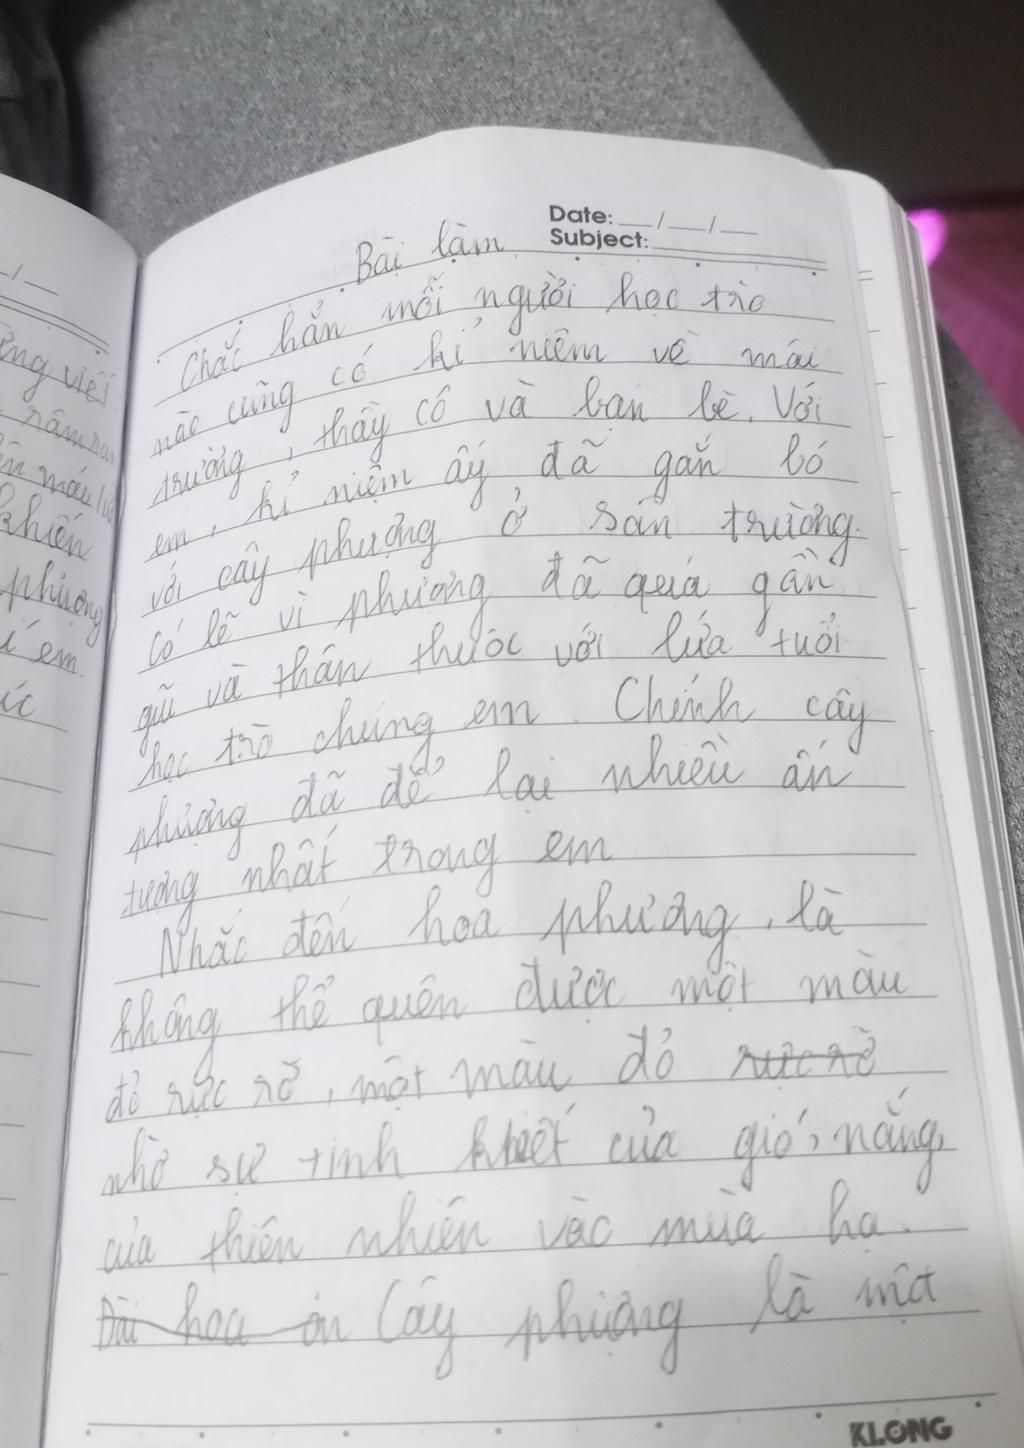 ếng việt
râm ran
khiến
phượng
em
ức
Date: __/__/__
Subject:
Bài làm
Chắc hẳn mỗi người học trò
nào cũng có kỉ niệm về mái
trường, thầy cô và bạn bè. Với
em, kỉ niệm ấy đã gắn bó
với cây phượng ở sân trường.
Có lẽ vì phượng đã quá gần
gũi và thân thuộc với lứa tuổi
học trò chúng em. Chính cây
phượng đã để lại nhiều ấn
tượng nhất trong em
Nhắc đến hoa phượng, là
không thể quên được một màu
đỏ rực rỡ, một màu đỏ rực rỡ
nhờ sự tinh khiết của gió, nắng,
của thiên nhiên vào mùa hạ.
Đài hoa ôn Cây phượng là một
KLONG